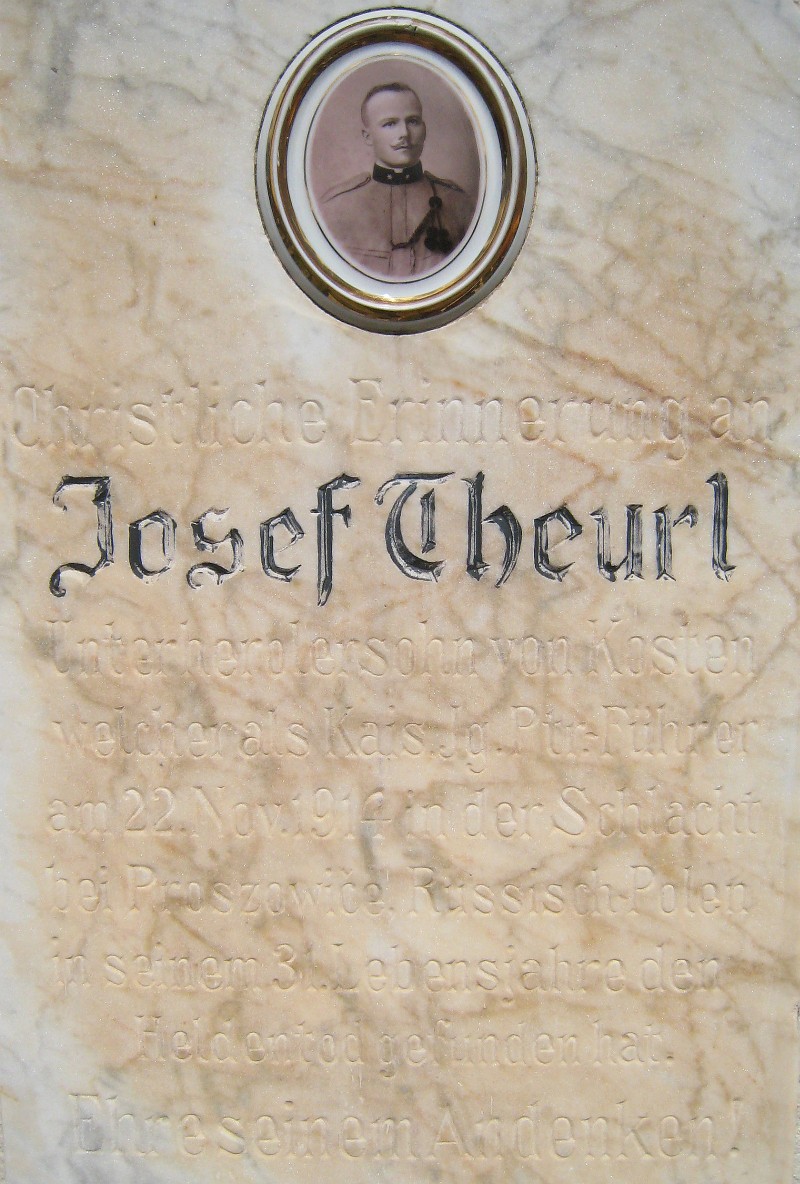 Christliche Erinnerung an
Josef Theurl
Unterherolersohn von Kosten
welcher als Kais. Jg. Ptr.-Führer
am 22. Nov. 1914 in der Schlacht
bei Proszowiče, Russisch-Polen
in seinem 31. Lebensjahre den
Heldentod gefunden hat.
Ehre seinem Andenken!